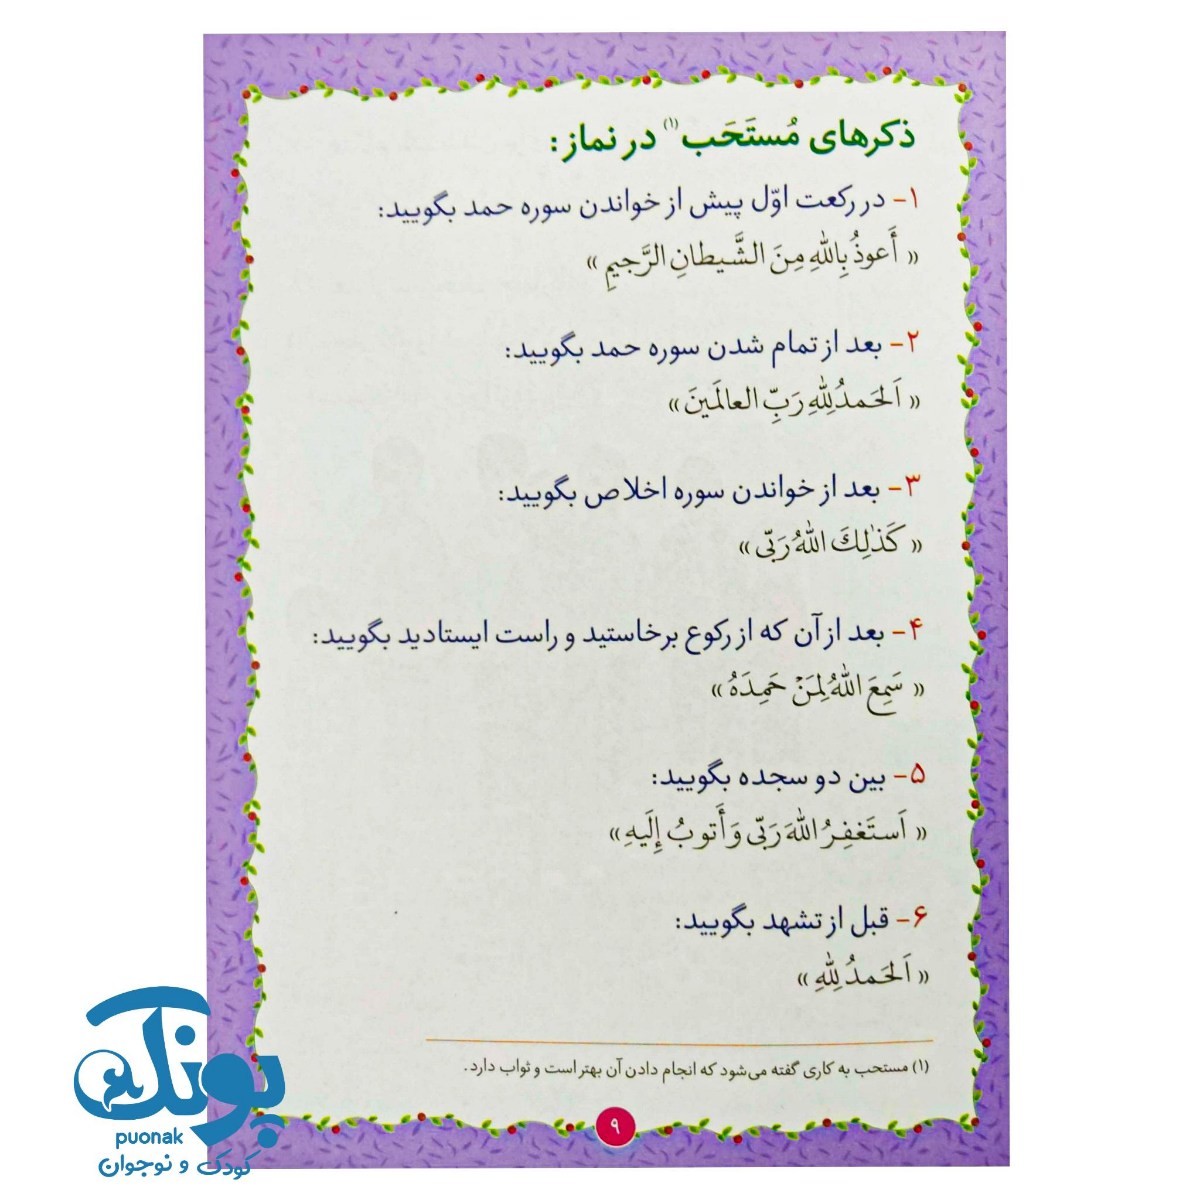 ذکرهای مُستَحَب(۱) در نماز:
۱- در رکعت اوّل پیش از خواندن سوره حمد بگویید:
« أَعوذُ بِاللهِ مِنَ الشَّیطانِ الرَّجیمِ »
۲- بعد از تمام شدن سوره حمد بگویید:
« اَلحَمدُ لِلّٰهِ رَبِّ العالَمینَ »
۳- بعد از خواندن سوره اخلاص بگویید:
« کَذٰلِكَ اللهُ رَبّی »
۴- بعد از آن که از رکوع برخاستید و راست ایستادید بگویید:
« سَمِعَ اللهُ لِمَنْ حَمِدَهُ »
۵- بین دو سجده بگویید:
« اَستَغفِرُ اللهَ رَبّی وَ أَتوبُ إِلَیهِ »
۶- قبل از تشهد بگویید:
« اَلحَمدُ لِلّٰهِ »
(۱) مستحب به کاری گفته می‌شود که انجام دادن آن بهتر است و ثواب دارد.
۹
پونک
puonak
کودک و نوجوان